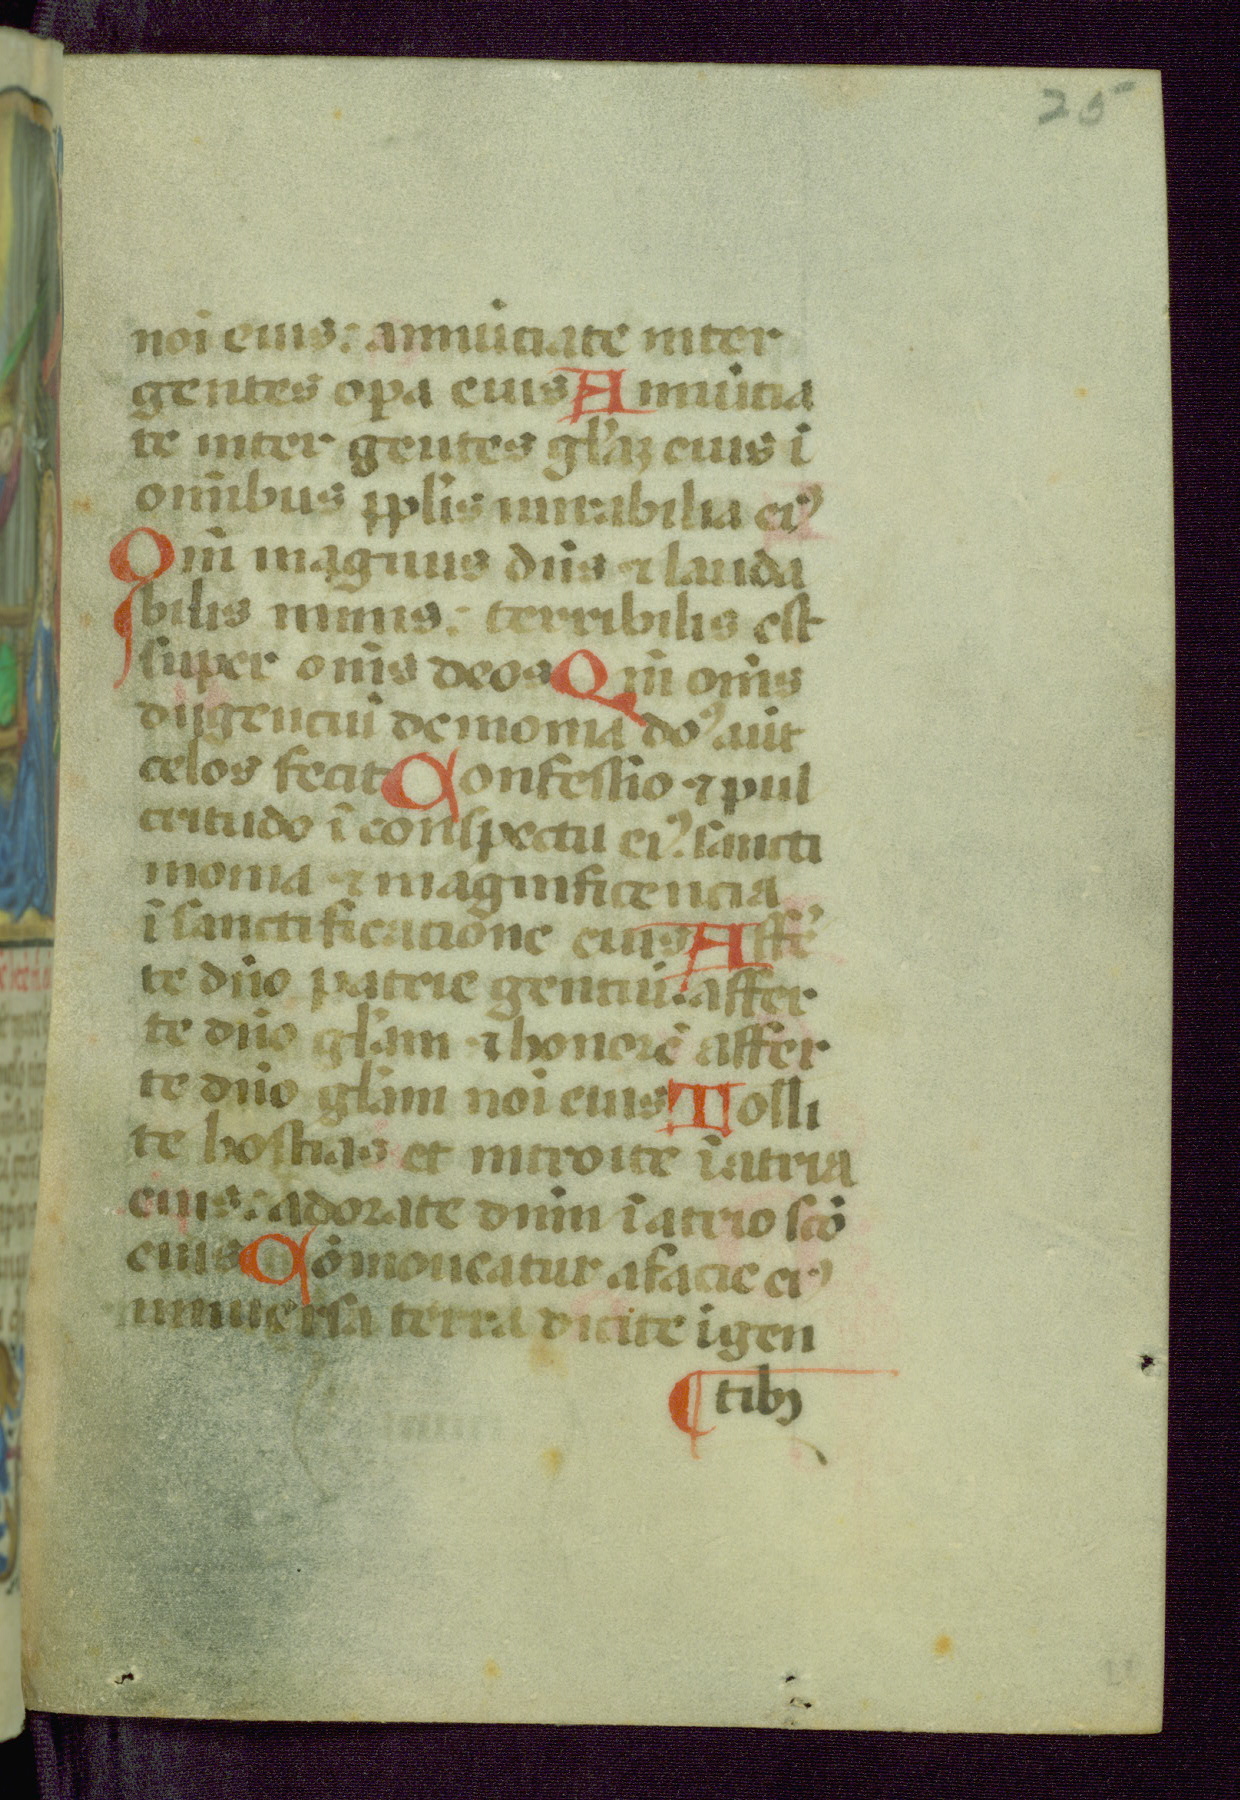 25
noi eius: annūciate inter
gentes opa eius Annūcia
te inter gentes gl'aꝫ eius ī
om̄ibus ppl'is mirabilia ei᾽
Qm̄ magnus dn̄s ⁊ lauda
bilis nimis: terribilis est
super om̄s deos Qm̄ om̄s
dij genciū demonia do᾽ aūt
celos fecit Confessio ⁊ pul
critudo ī conspectu ei᾽: sancti
monia ⁊ magnificencia
ī sanctificatione eius Affe᾽
te dn̄o patrie genciū: affer
te dn̄o gl'am ⁊ honorē affer
te dn̄o gl'am noi eius Tolli
te hostias et introite ī atria
eius: adorate dnm̄ ī atrio scō
eius Cōmoueatur a facie ei᾽
uniuersa terra dicite ī gen
tibꝫ